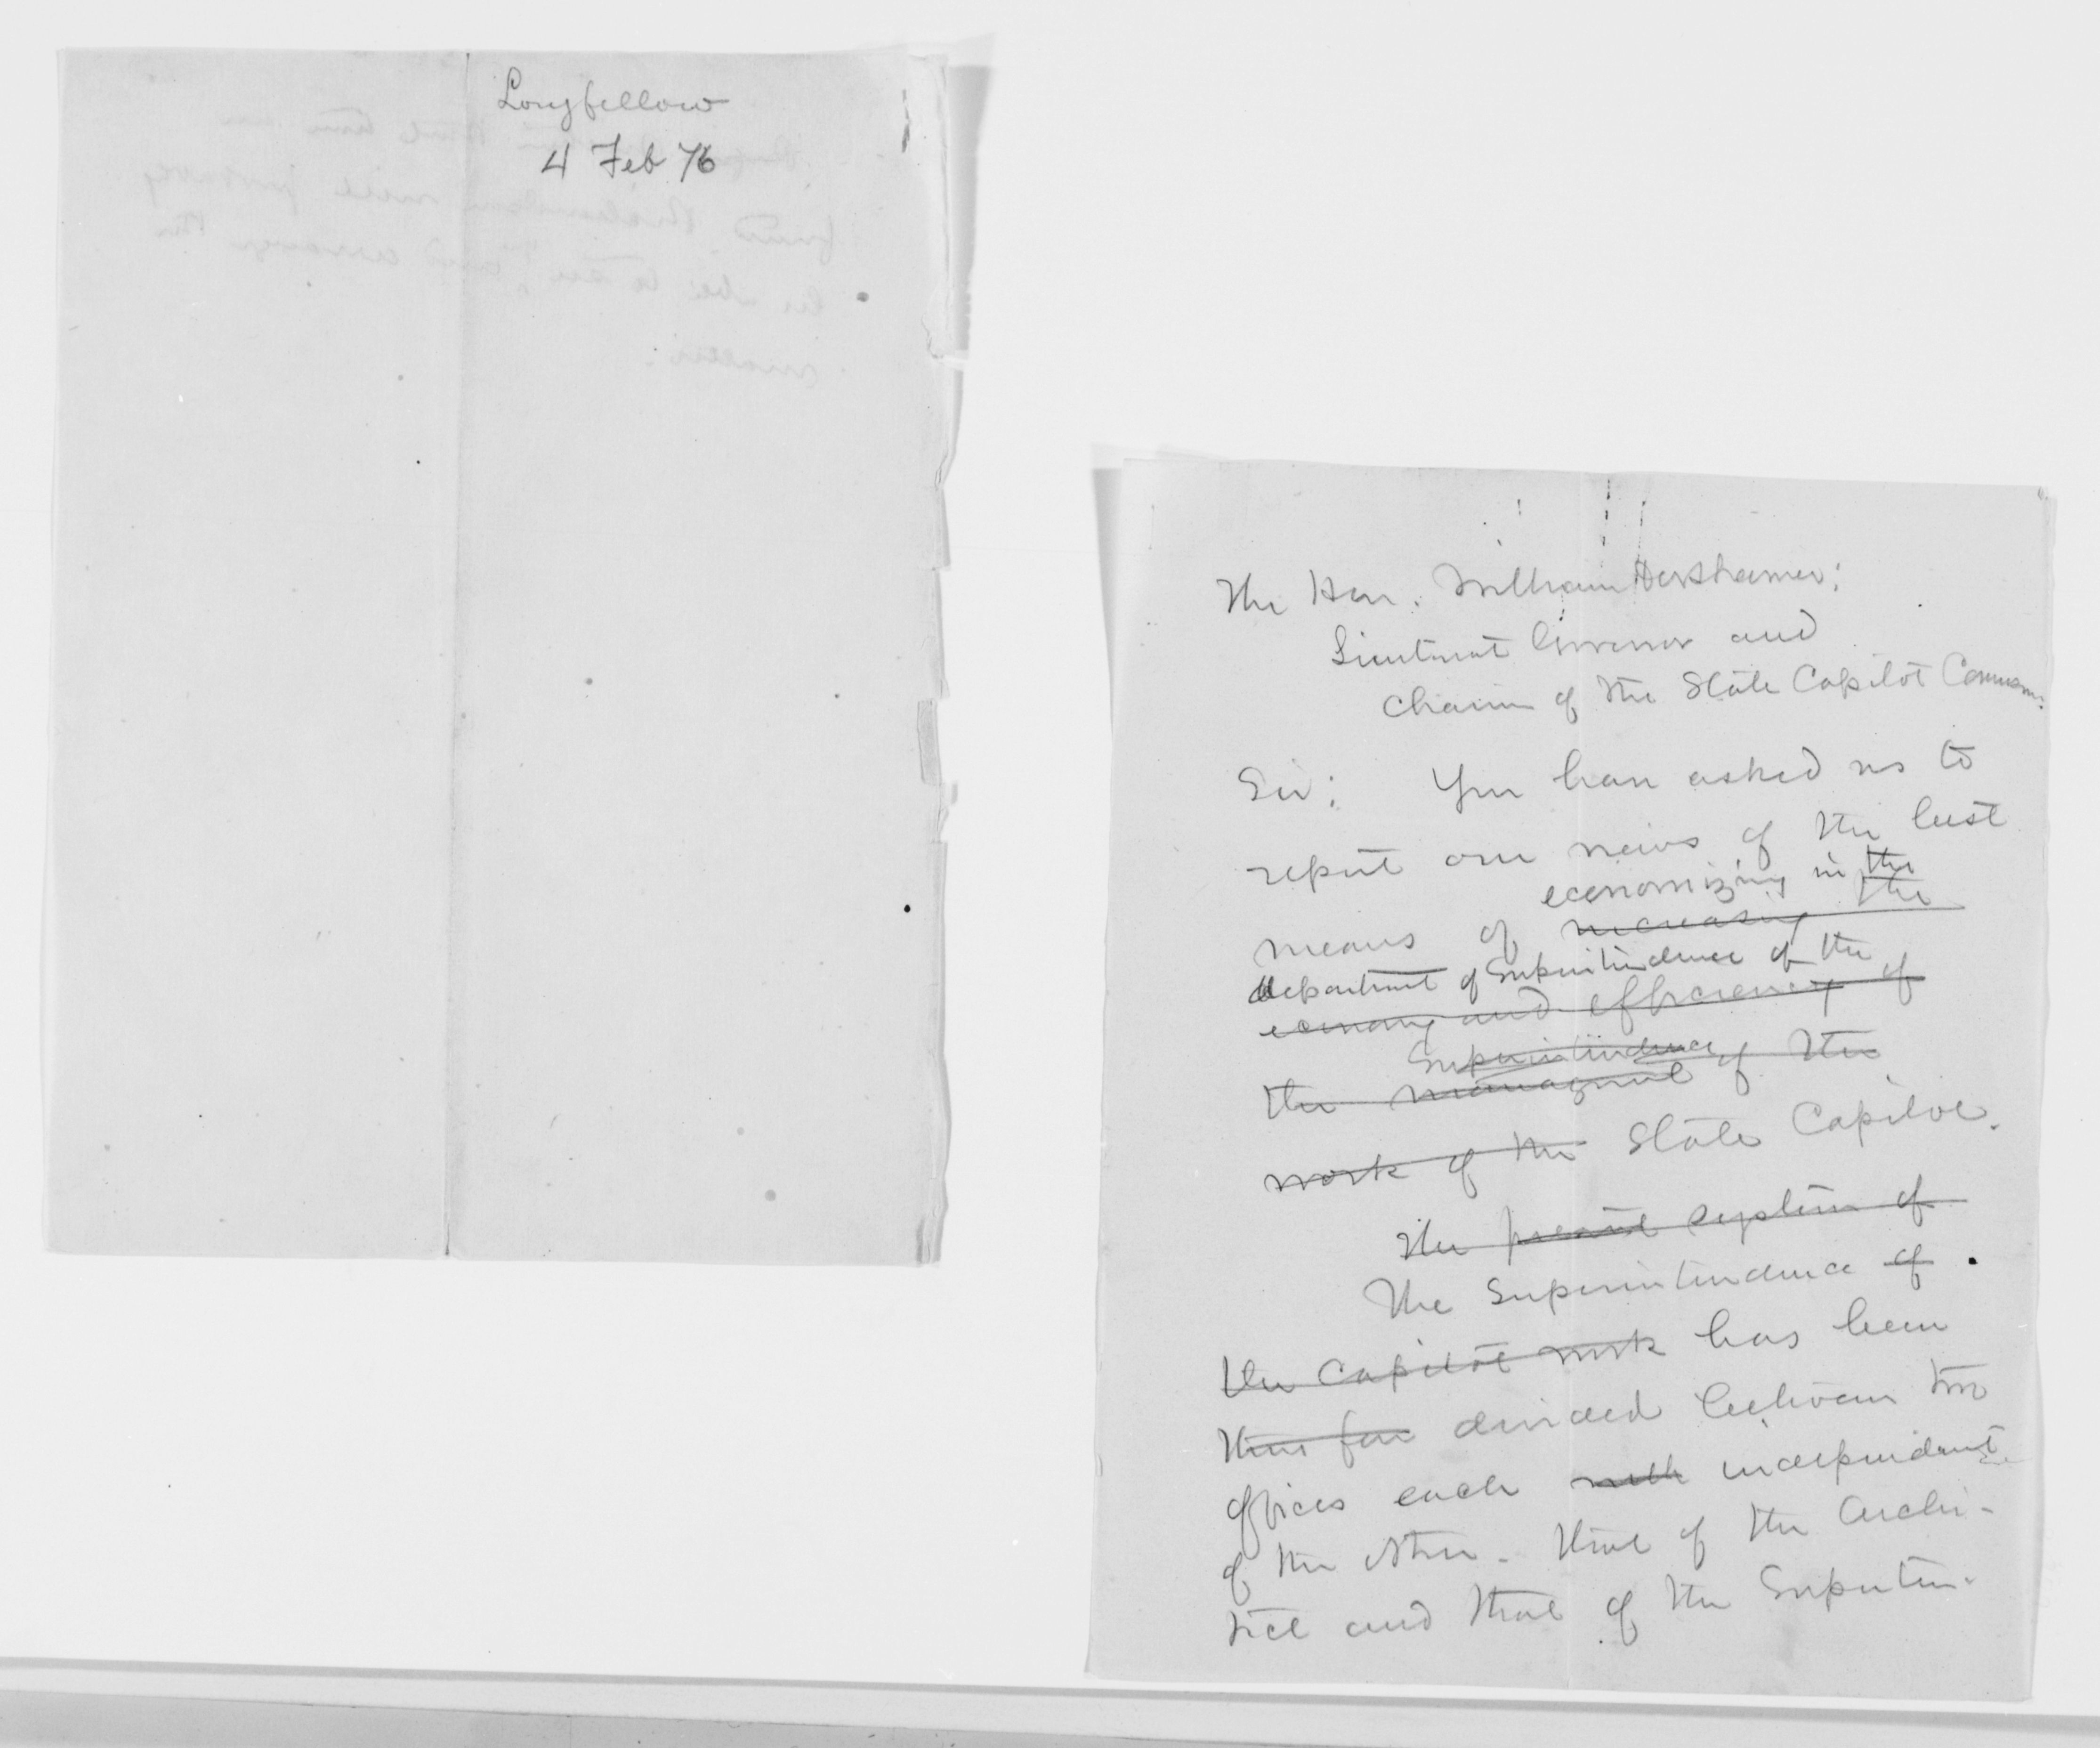 Longfellow
4 Feb 76
The Hon. William Dorsheimer:
Lieutenant Governor and
Chairman of the State Capitol Commissn.
Sir: You have asked us to
report our views of the best
economizing in the
means of increasing the
department of Superintendence of the
economy and efficiency of
Superintendence
the management of the
work of the State Capitol.
The present system of
The Superintendence of
the Capitol work has been
thus far divided between two
offices each with independent
of the other. that of the Archi-
tect and that of the Superinten-